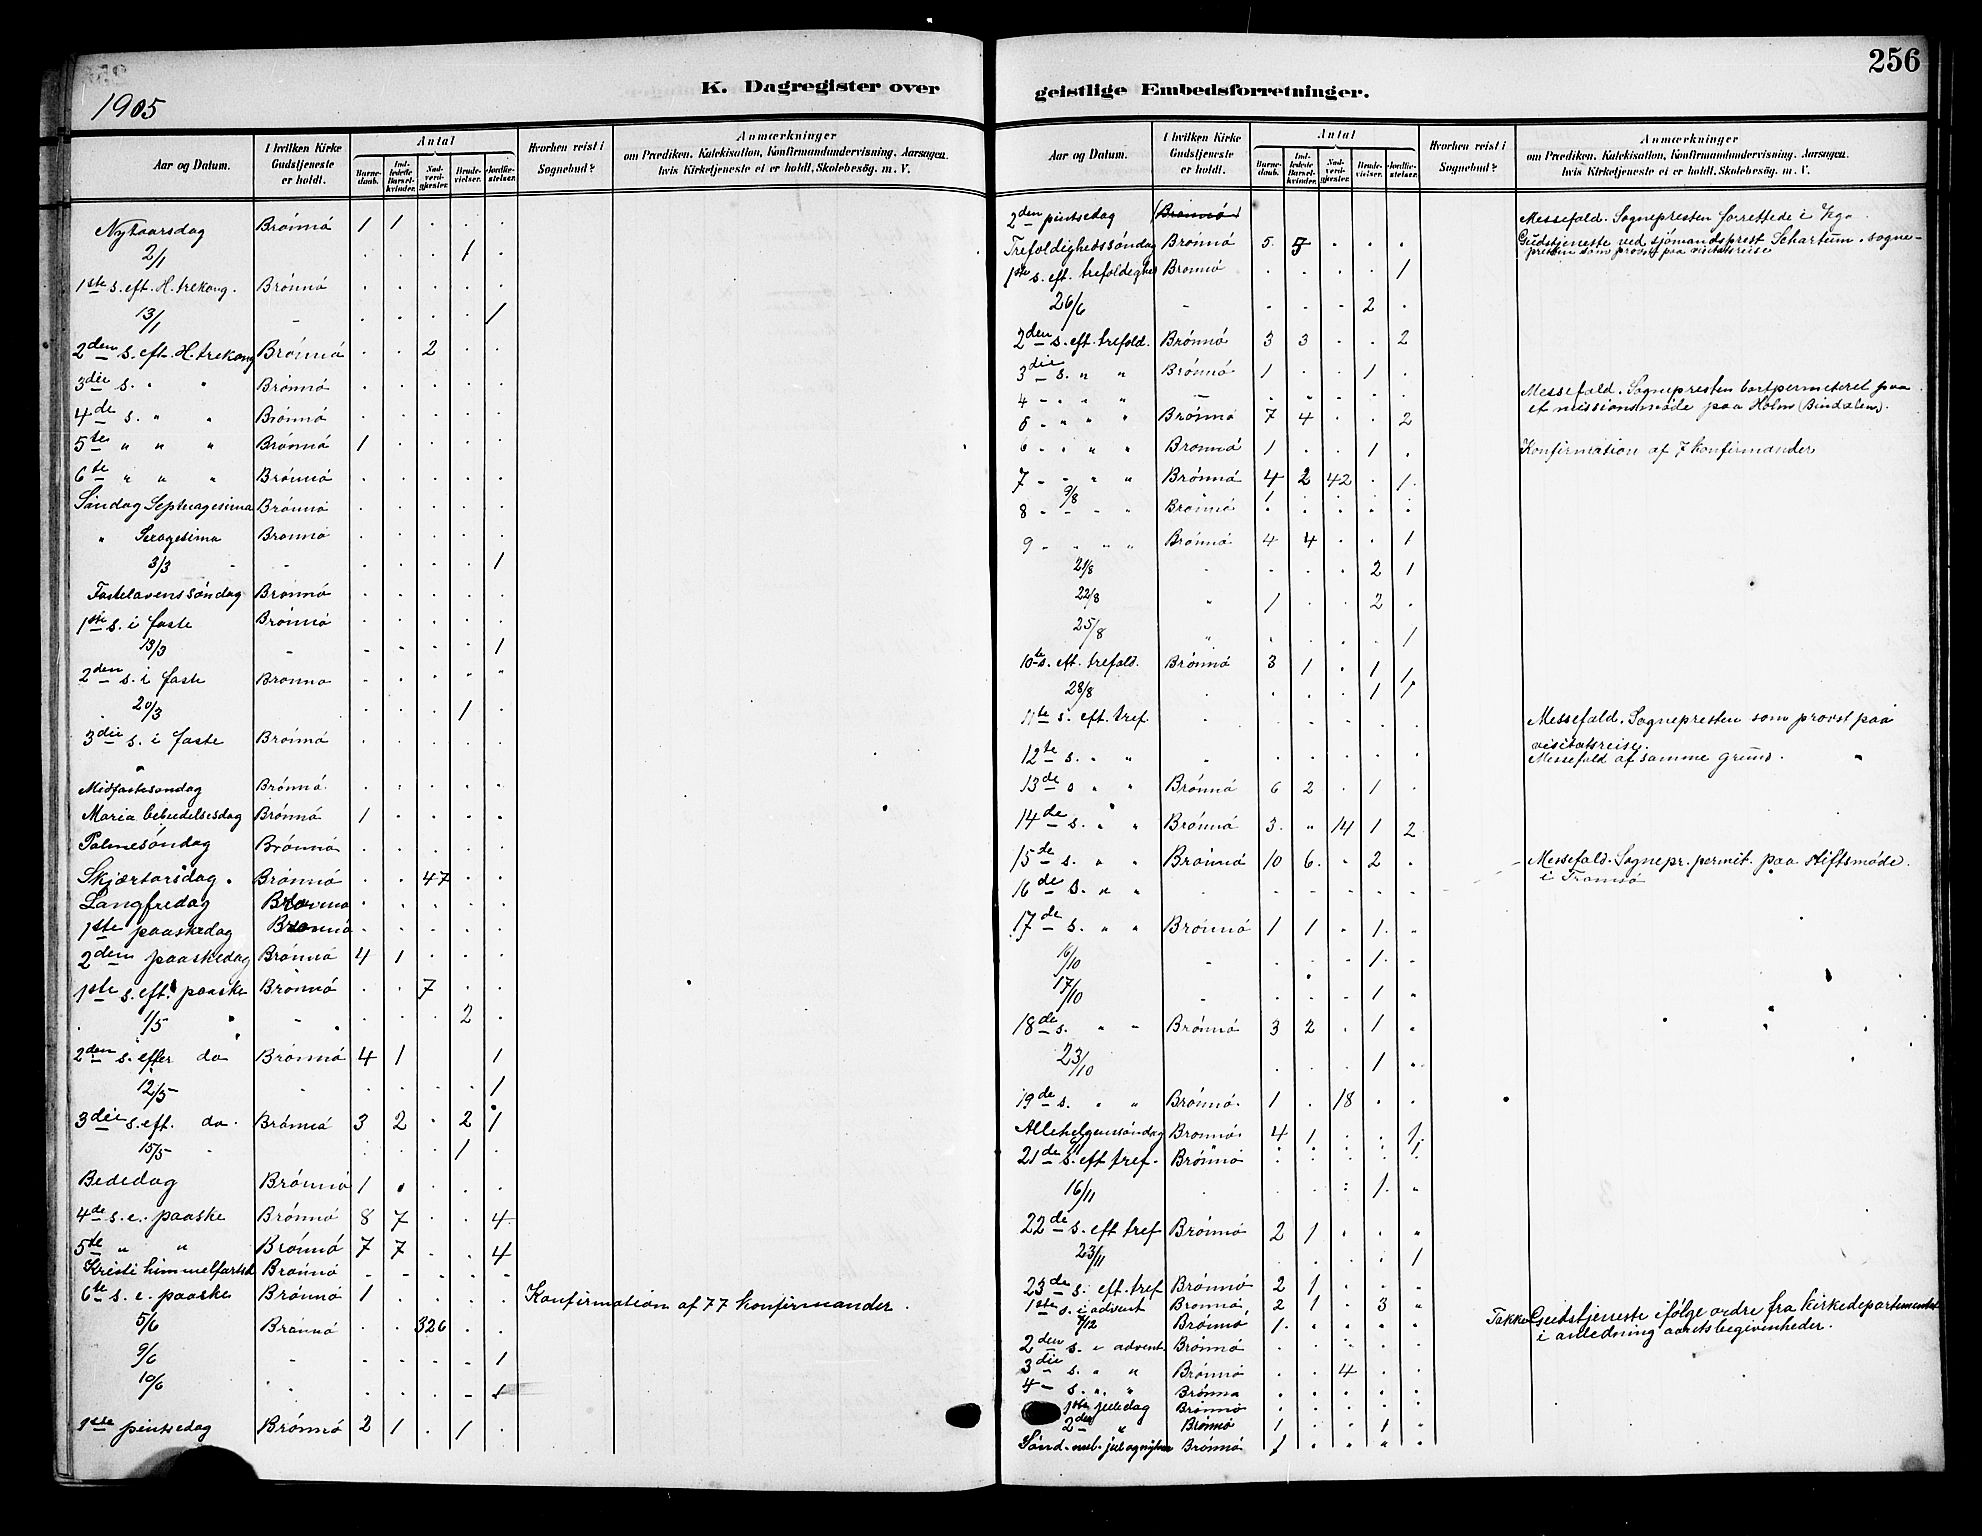 256
1905
K. Dagregister over geistlige Embedsforretninger.
Aar og Datum. | I hvilken Kirke Gudstjeneste er holdt. | Antal | Barnedaab. | Indledede Barselkvinder. | Nadverdgjæster. | Brudevielser. | Jordfæstelser. | Hvorhen reist i Sognebud? | Anmærkninger om Prædiken, Katekisation, Konfirmandundervisning, Aarsagen, hvis Kirketjeneste ei er holdt, Skolebesøg. m. V.
Nytaarsdag Brönnö 1 1 . . .
2/1 . . . 1 .
1ste s. eft. H. trekong. Brönnö . . . . .
13/1 - . . . . 1
2den s. eft. H. trekong Brönnö . . 2 . .
3die s. " " Brönnö . . . . .
4de s. " " Brönnö . . . . .
5te " " " Brönnö 1 . . . .
6te " " " Brönnö . . . . .
Söndag Septuagesima Brönnö . . . . .
" Sexagesima Brönnö . . . . .
3/3 - . . . . 1
Fastelavenssöndag Brönnö . . . . .
1ste s. i faste Brönnö . . . . .
13/3 - . . . . 1
2den s. i faste Brönnö . . . . .
20/3 . . . 1 .
3die s. i faste Brönnö . . . . .
Midfastesöndag Brönnö . . . . .
Maria bebudelsesdag Brönnö 1 . . . .
Palmesöndag Brönnö . . . . .
Skjærtorsdag Brönnö . . 47 . .
Langfredag Brönnö . . . . .
1ste paaskedag Brönnö . . . . .
2den paaskedag Brönnö 4 1 . . .
1ste s. eft. paaske Brönnö . . 7 . .
1/5 - . . . 2 .
2den s. efter do Brönnö 4 1 . . 1
12/5 . . . . 1
3die s. eft. do. Brönnö 3 2 . 2 1
15/5 . . . 1 .
Bededag Brönnö 1 . . . .
4de s. e. paaske Brönnö 8 7 . . 4
5te " " Brönnö 7 7 . . 4
Kristi himmelfartsd Brönnö - - - - -
6te s. e. paaske Brönnö 1 . . . . Konfirmation af 77 konfirmander.
5/6 Brönnö . . 326 . .
9/6 - . . . . 1
10/6 . . . - 1
1ste pintsedag Brönnö 2 1 . 1 .
Aar og Datum. | I hvilken Kirke Gudstjeneste er holdt. | Antal | Barnedaab. | Indledede Barselkvinder. | Nadverdgjæster. | Brudevielser. | Jordfæstelser. | Hvorhen reist i Sognebud? | Anmærkninger om Prædiken, Katekisation, Konfirmandundervisning, Aarsagen, hvis Kirketjeneste ei er holdt, Skolebesøg. m. V.
2den pintsedag (Brönnö) Messefald. Sognepresten forrettede i Vega.
Trefoldighedssöndag Brönnö 5. 5 . . . Gudstjeneste ved sjömandsprest Schartum. sogne-
presten som provst paa visitatsreise
1ste s. eft. trefoldighed Brönnö . . . . 1
26/6 - . . . 2 .
2den s. eft. trefold. Brönnö 3 3 . . 2
3die s. " " Brönnö 1 . . 1 .
4 - " " - . . . . . Messefald. Sognepresten bortpermiteret paa
et missionsmöde paa Holm (Bindalen).
5 " " " Brönnö 7 4 . . 2
6 - " " Brönnö 1 . . 1 . Konfirmation af 7 konfirmander
7 - - " " Brönnö 4 2 42 . 1.
9/8 " 1 . . . .
8 " - - " Brönnö . . . . .
9 - " " " Brönnö 4 4 . . 1
21/8 " . . . 2 1
22/8 " 1 . . 2 .
25/8 " . . . . 1
10te s. eft. trefold. Brönnö 3 1 . 1 1
28/8 . . . 1 1
11te s. eft. tref. . . . . . Messefald. Sognepresten som provst paa
visitatsreise.
12te s. " " " . . . . . Messefald af samme grund.
13de s " " Brönnö 6 2 . 1 .
14de s. " " Brönnö 3. " 14 1 2
15de s. " " Brönnö 10 6. . 2 .
16de s. " " . . . . . Messefald. Sognepr. permit. paa stiftsmöde
i Tromsö
17de s. " " Brönnö 1 1 . 1. .
16/10 - . . . 1. .
17/10 - . . . 1 .
18de s. " " Brönnö 3 2 . 1 .
23/10 . . . 1 .
19de s. " " Brönnö. 1 . 18 . .
Allehelgenssöndag Brönnö. 4 1 . . 1.
21de s. eft tref. Brönnö . . . . .
16/11 . . . 1. .
22de s. eft tref Brönnö 2 1 . . .
23/11 . . . . 1
23de s. eft. tref Brönnö 2 1 . . .
1ste s. i advent Brönnö, 2 1 . 3 "
7/12 Brönnö 1. . . . . Takke Gudstjeneste ifölge ordre fra kirkedepartementet
i anledning aarets begivenheder.
2den s. i advent. Brönnö . . . . .
3die s. " " Brönnö . . 4 . .
4 - s. " " Brönnö . . . . .
1ste juledag Brönnö . . . . .
2den " Brönnö 1 . . 1 .
Sönd. mel. jul og nytaar Brönnö 1 . . . .